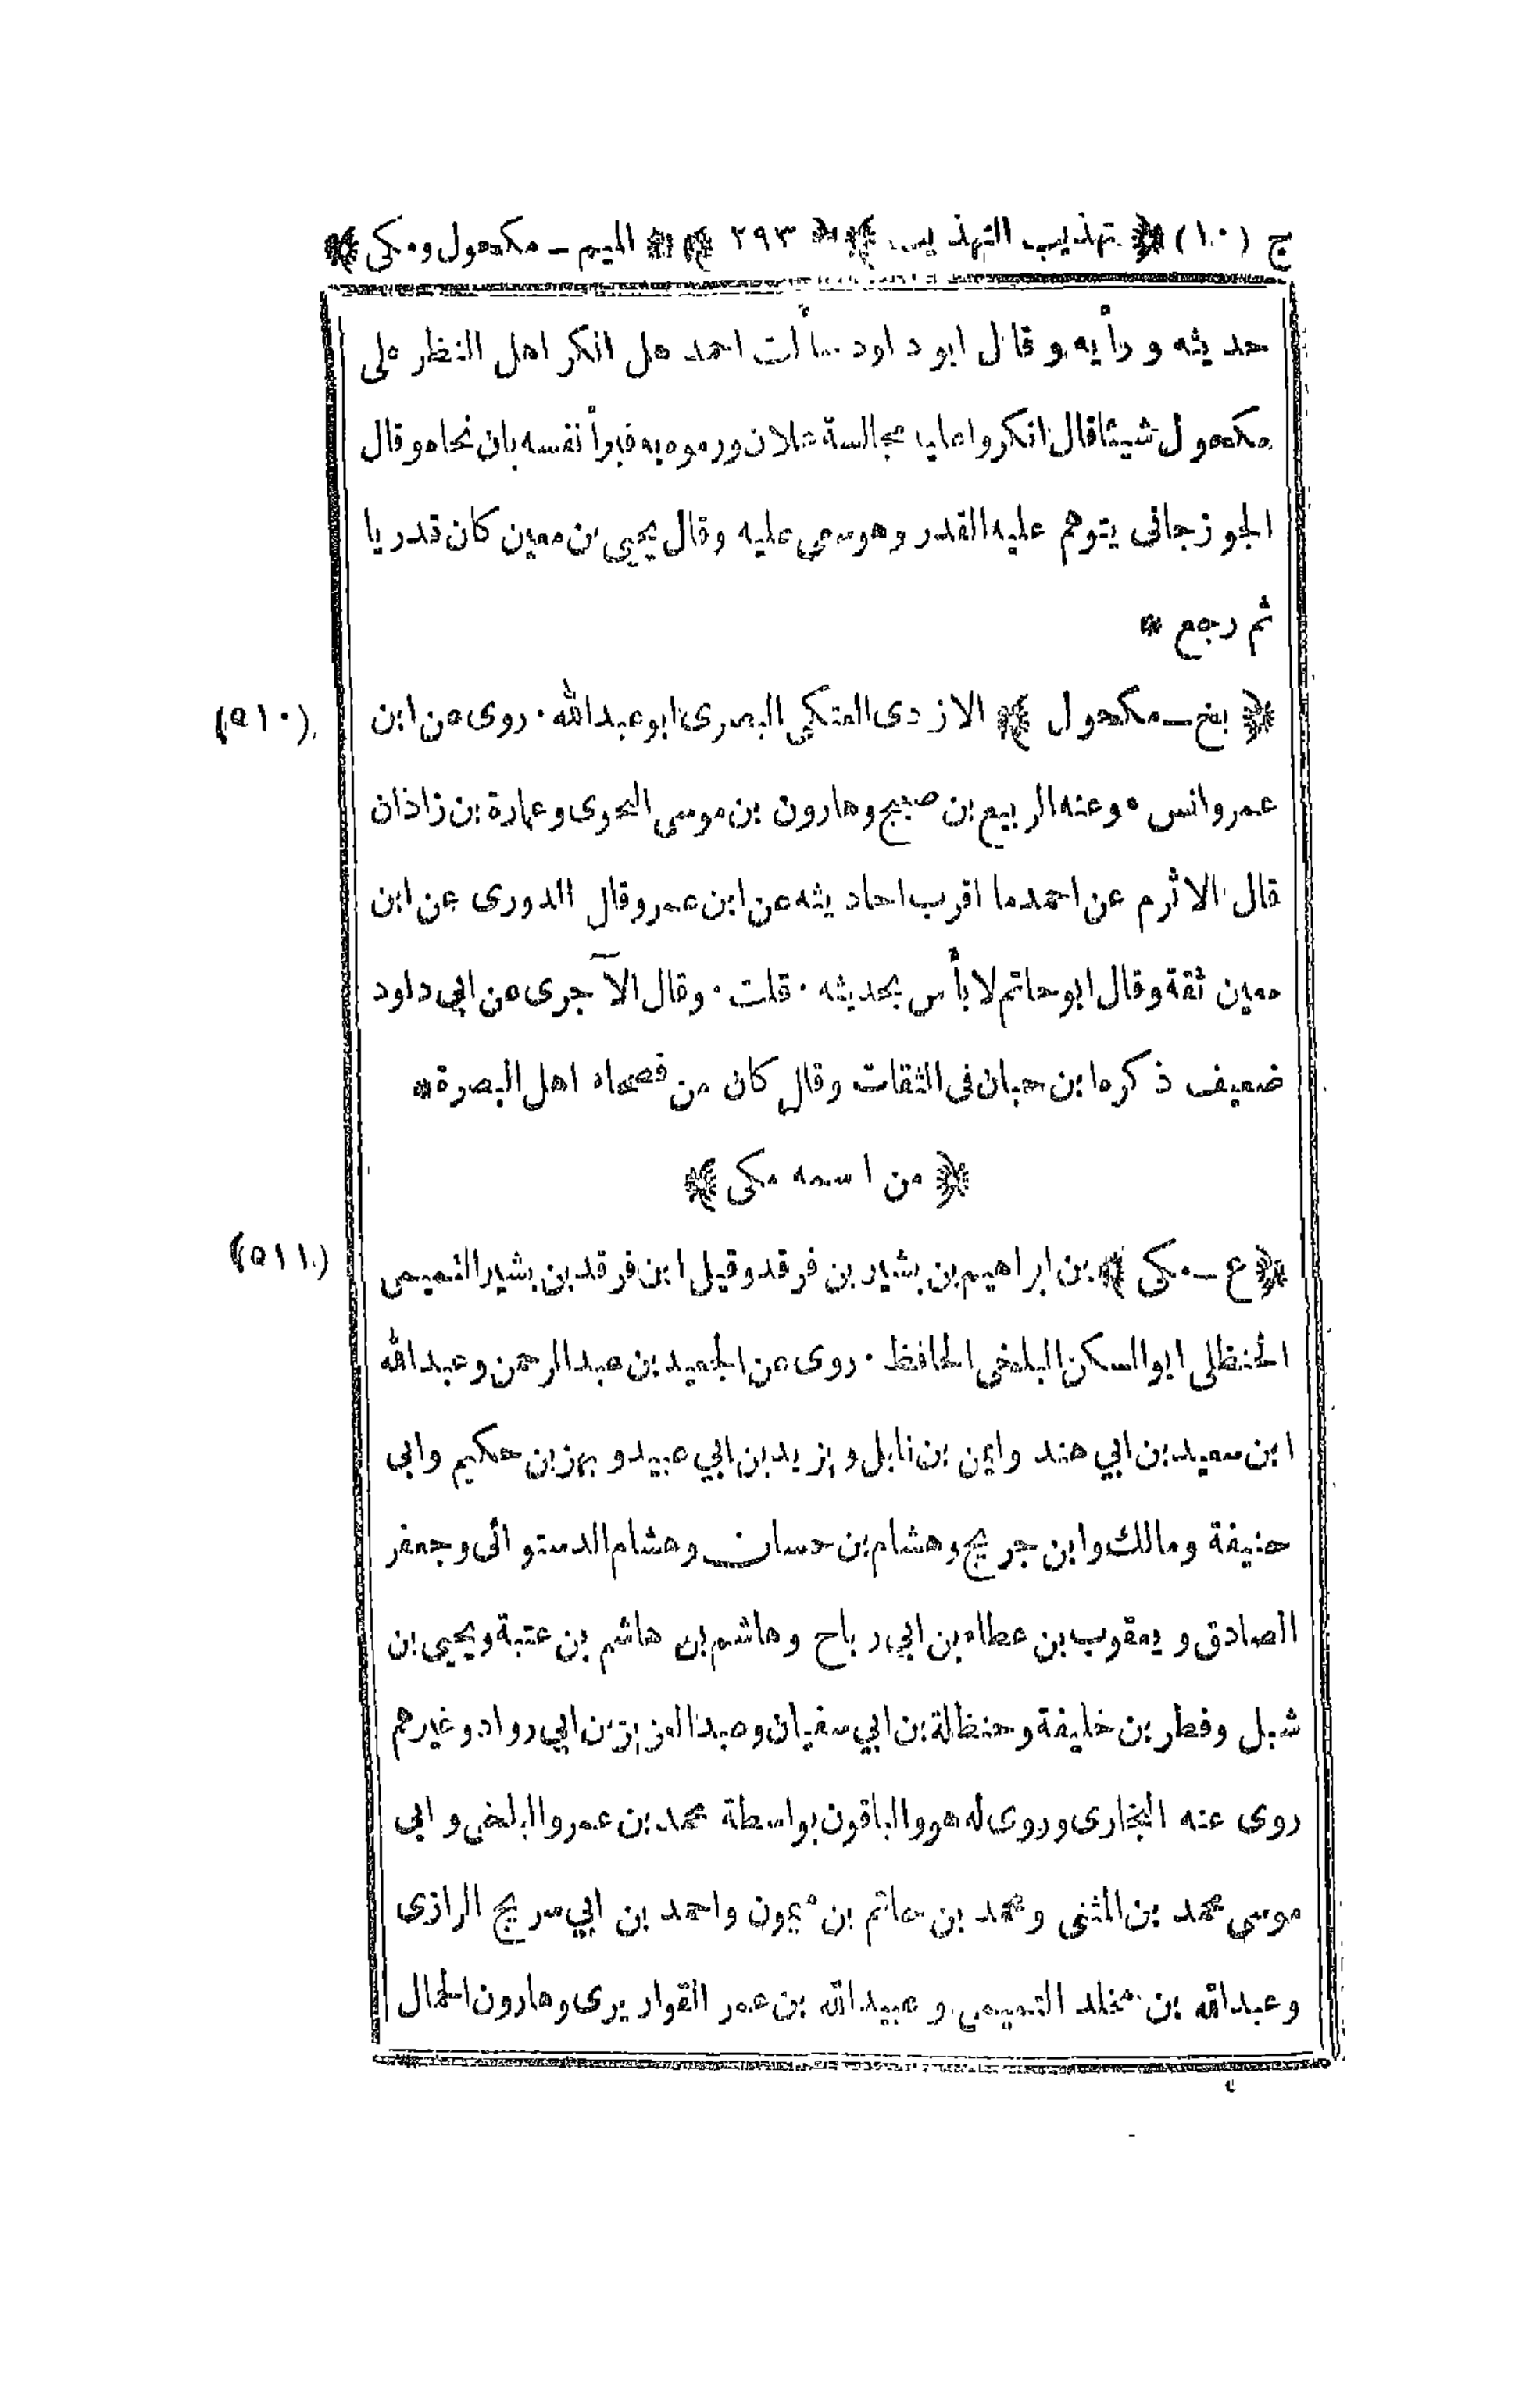 ج (١٠) ﴿ تهذيب التهذيب ﴾ ﴿ ٢٩٣ ﴾ ﴿ الميم - مكحول ومكى ﴾
حديثه ورأيه وقال ابو داود سألت احمد هل انكر اهل النظر على
مكحول شيئا قال انكروا عليه مجالسة غيلان ورموه به فبرأ نفسه بان نحاه وقال
الجوزجانى يتوهم عليه القدر وهو سعى عليه وقال يحيى بن معين كان قدريا
ثم رجع *
(٥١٠) ﴿ بخ - مكحول ﴾ الازدى العتكي البصرى ابو عبدالله . روى عن ابن
عمر وانس . وعنه الربيع بن صبيح وهارون بن موسى النحوى وعمارة بن زاذان
قال الاثرم عن احمد ما اقرب احاديثه عن ابن عمر وقال الدورى عن ابن
معين ثقة وقال ابو حاتم لا بأس بحديثه . قلت . وقال الآجرى عن ابي داود
ضعيف ذكره ابن حبان فى الثقات وقال كان من فصحاء اهل البصرة *
﴿ من اسمه مكى ﴾
(٥١١) ﴿ ع - مكى ﴾ بن ابراهيم بن بشير بن فرقد وقيل ابن فرقد بن بشير التميمى
الحنظلى ابو السكن البلخى الحافظ . روى عن الجعيد بن عبد الرحمن وعبدالله
ابن سعيد بن ابي هند وايمن بن نابل ويزيد بن ابي عبيد وبهز بن حكيم وابى
حنيفة ومالك وابن جريج وهشام بن حسان وهشام الدستوائى وجعفر
الصادق ويعقوب بن عطاء بن ابي رباح وهاشم بن هاشم بن عتبة ويحيى بن
شبل وفطر بن خليفة وحنظلة بن ابي سفيان وعبد العزيز بن ابي رواد وغيرهم
روى عنه البخارى وروى له هو والباقون بواسطة محمد بن عمرو البلخى وابى
موسى محمد بن المثنى ومحمد بن حاتم بن ميمون واحمد بن ابي سريج الرازى
وعبدالله بن مخلد التميمى وعبيدالله بن عمر القواريرى وهارون الحمال